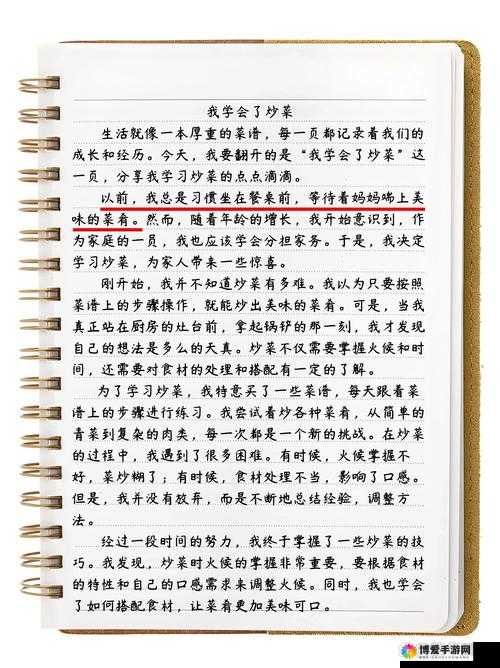 我学会了炒菜
生活就像一本厚重的菜谱，每一页都记录着我们的
成长和经历。今天，我要翻开的是“我学会了炒菜”这
一页，分享我学习炒菜的点点滴滴。
以前，我总是习惯坐在餐桌前，等待着妈妈端上美
味的菜肴。然而，随着年龄的增长，我开始意识到，作
为家庭的一员，我也应该学会分担家务。于是，我决定
学习炒菜，为家人带来一些惊喜。
刚开始，我并不知道炒菜有多难。我以为只要按照
菜谱上的步骤操作，就能炒出美味的菜肴。可是，当我
真正站在厨房的灶台前，拿起锅铲的那一刻，我才发现
自己的想法是多么的天真。炒菜不仅需要掌握火候和时
间，还需要对食材的处理和搭配有一定的了解。
为了学习炒菜，我特意买了一些菜谱，每天跟着菜
谱上的步骤进行练习。我尝试着炒各种菜肴，从简单的
青菜到复杂的肉类，每一次都是一个新的挑战。在炒菜
的过程中，我遇到了很多困难。有时候，火候掌握不
好，菜炒糊了；有时候，食材处理不当，影响了口感。
但是，我并没有放弃，而是不断地总结经验，调整方
法。
经过一段时间的努力，我终于掌握了一些炒菜的技
巧。我发现，炒菜时火候的掌握非常重要，要根据食材
的特性和自己的口感需求来调整火候。同时，我也学会
了如何搭配食材，让菜肴更加美味可口。
博爱手游网